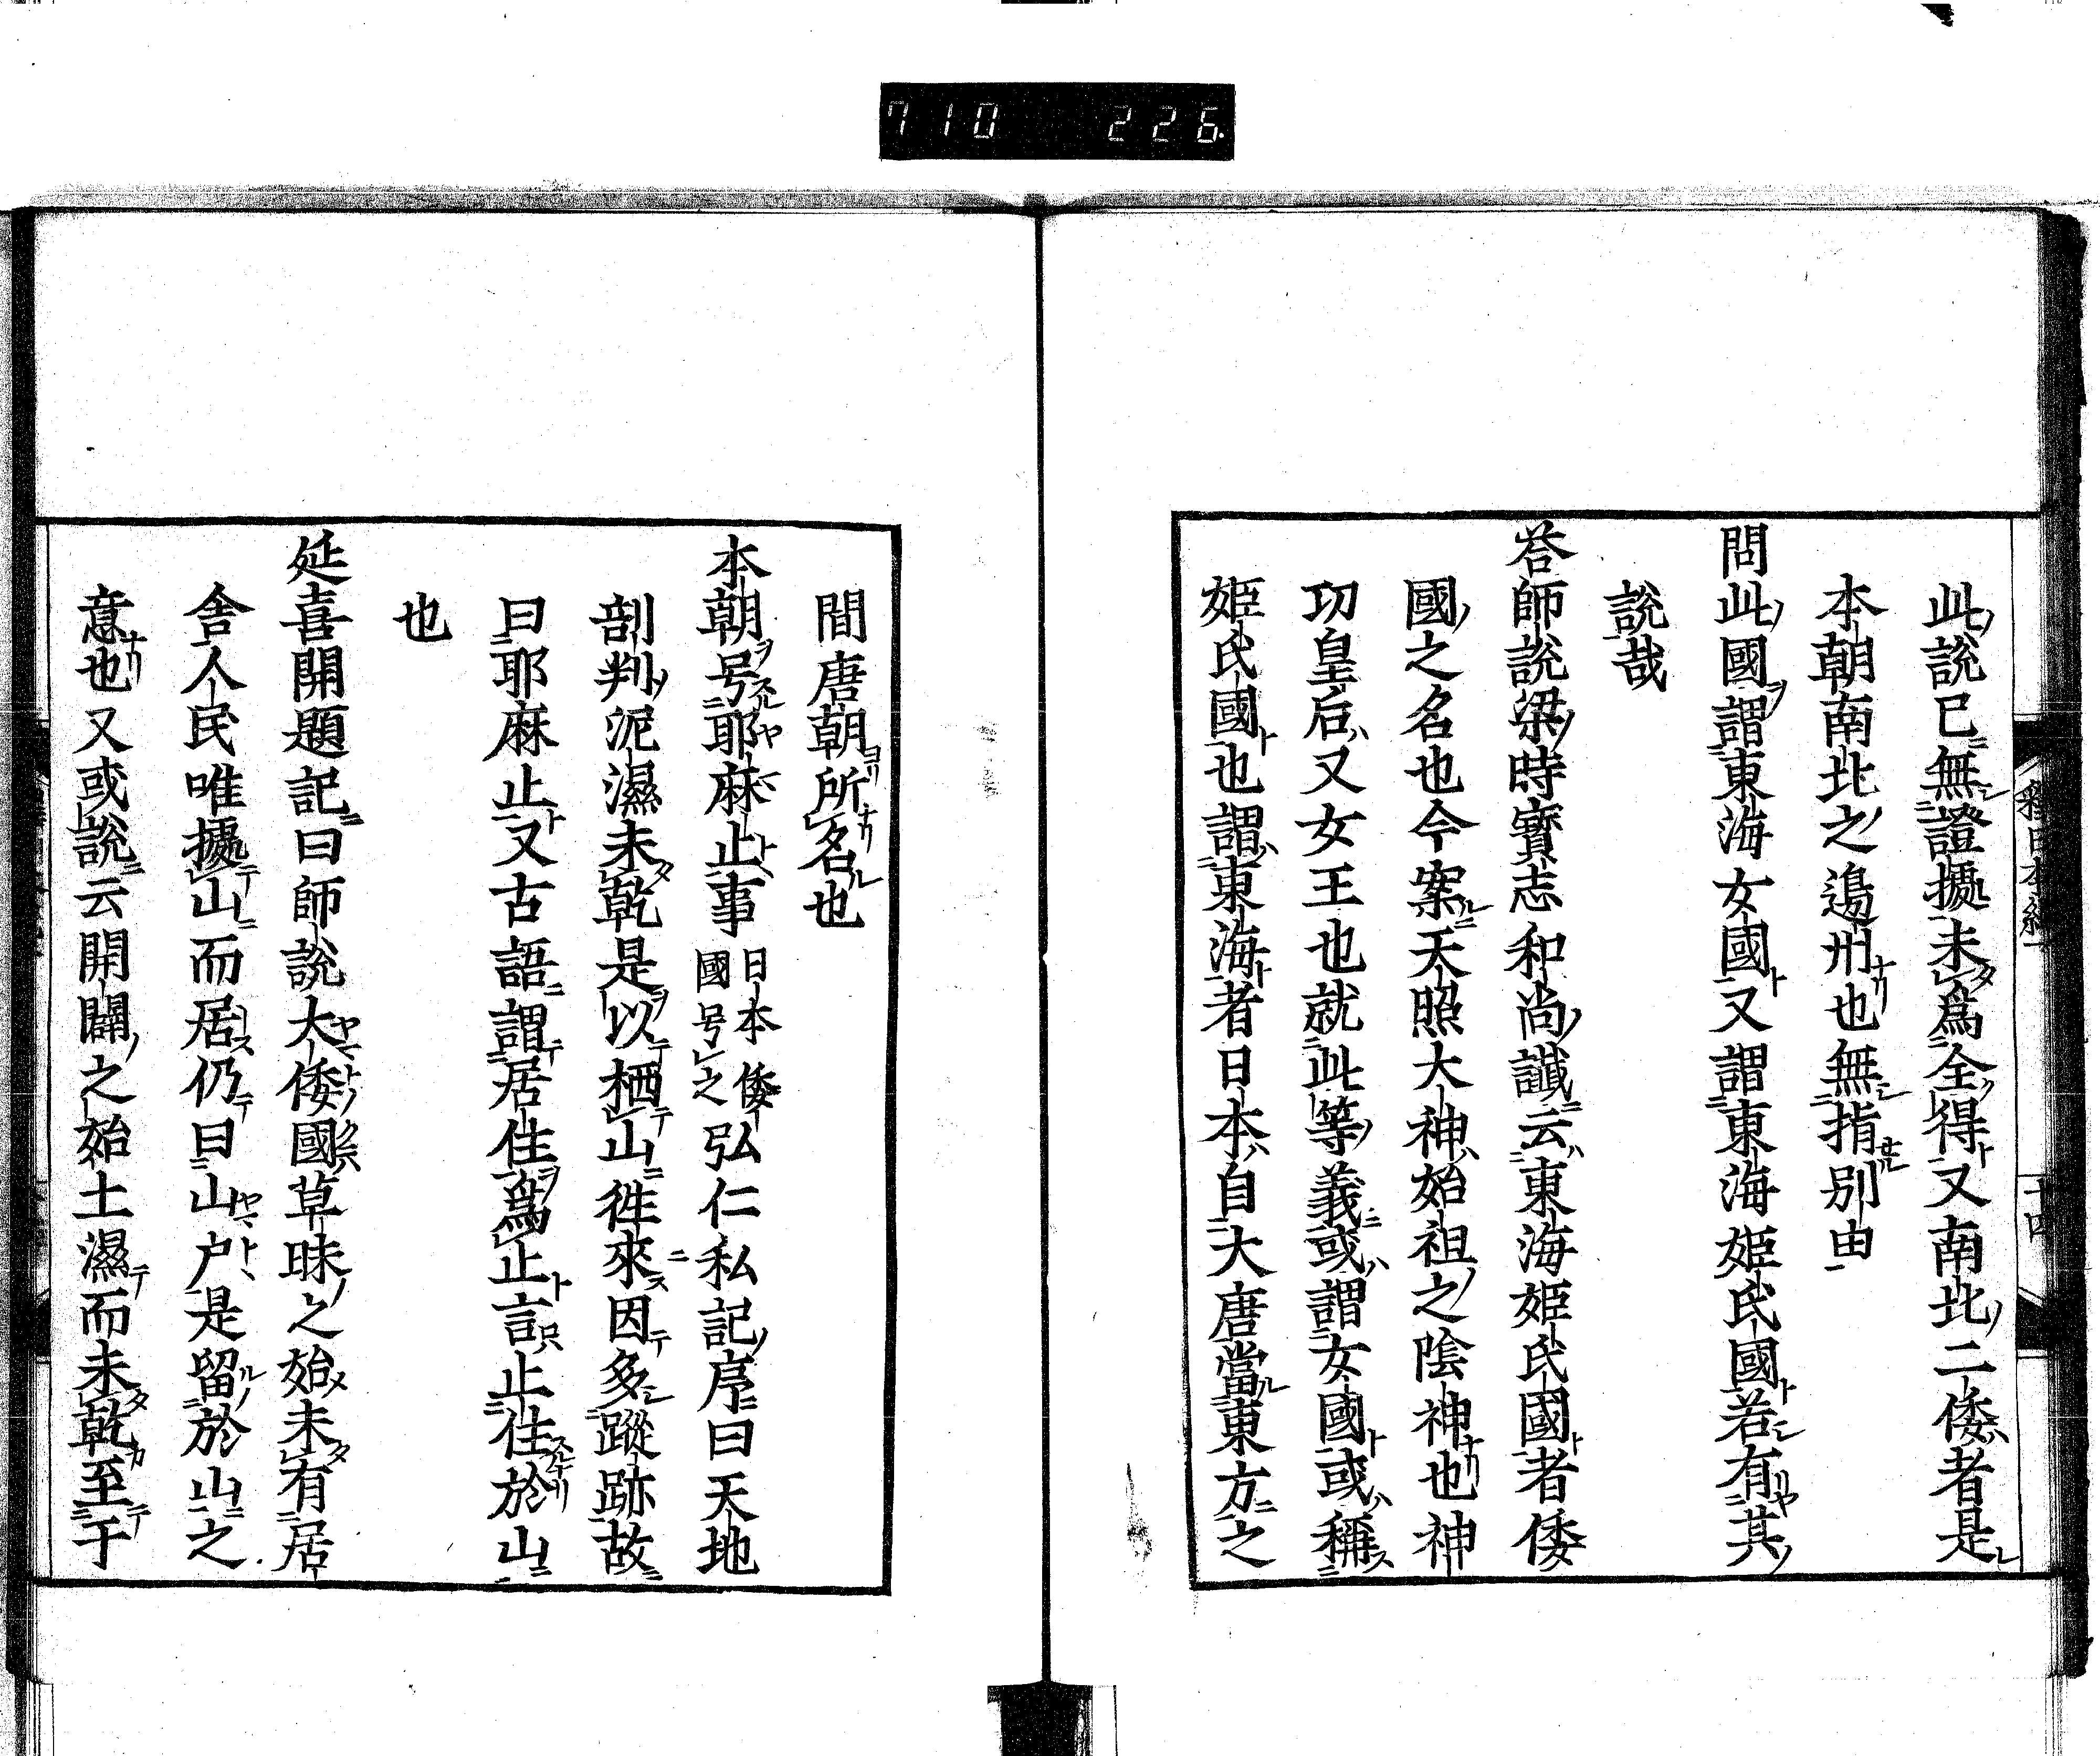 710 226
此說已無證據未為全得又南北二倭者是
本朝南北之邊州也無指別由
問此國謂東海女國又謂東海姬氏國若有其
說哉
答師說梁時寶志和尚讖云東海姬氏國者倭
國之名也今案天照大神始祖之陰神也神
功皇后又女王也就此等義或謂女國或稱
姬氏國也謂東海者日本自大唐當東方之
間唐朝所名也
本朝号耶麻止事 日本倭國号之 弘仁私記序曰天地
剖判泥濕未乾是以栖山徃來因多蹤跡故
曰耶麻止又古語謂居住為止言止住於山
也
延喜開題記曰師說大倭國草昧之始未有居
舍人民唯據山而居仍曰山戶是留於山之
意也又或說云開闢之始土濕而未乾至于